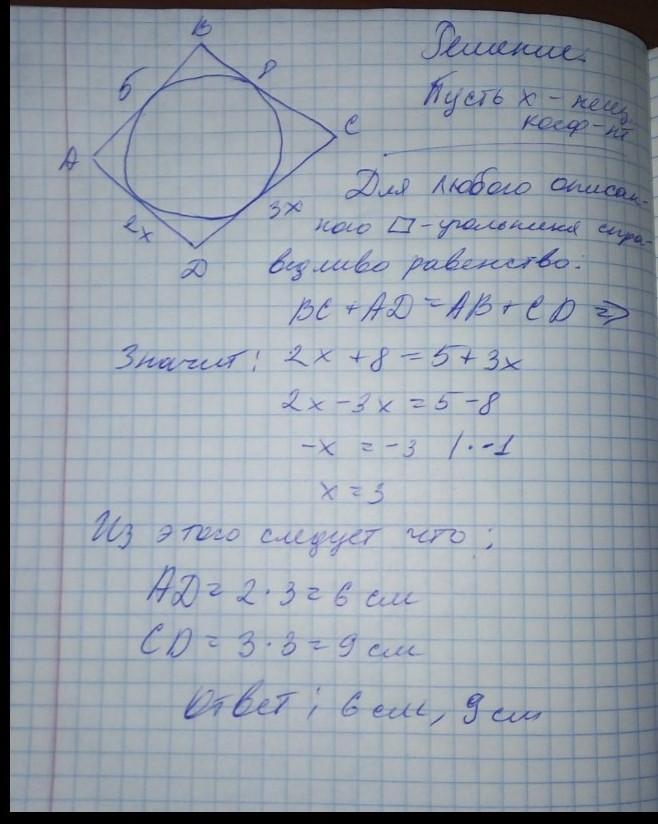 B
5
8
A
C
2x
3x
D
Решение.
Пусть x -
коеф-нт
Для любого описан-
ного □-угольника спра-
ведливо равенство:
BC + AD = AB + CD ⇒
Значит: 2x + 8 = 5 + 3x
2x - 3x = 5 - 8
-x = -3 | · -1
x = 3
Из этого следует что:
AD = 2 · 3 = 6 см
CD = 3 · 3 = 9 см
Ответ: 6 см, 9 см